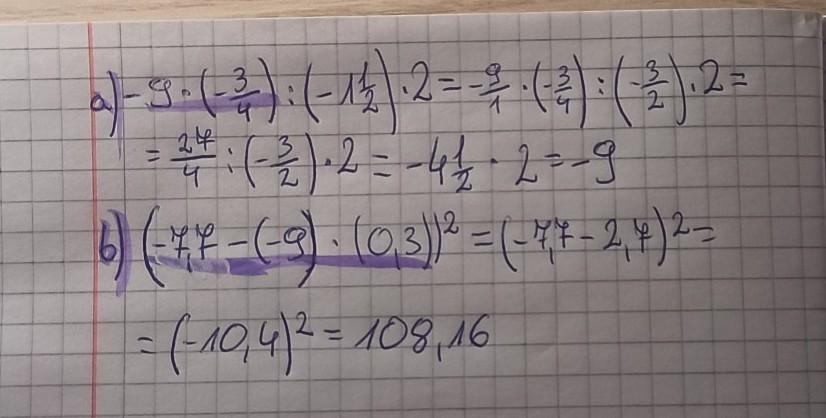 a) -9 · (-3/4) : (-1 1/2) · 2 = -9/1 · (-3/4) : (-3/2) · 2 =
= 27/4 : (-3/2) · 2 = -4 1/2 · 2 = -9
b) (-7,7 - (-9) · (0,3))² = (-7,7 - 2,7)² =
= (-10,4)² = 108,16